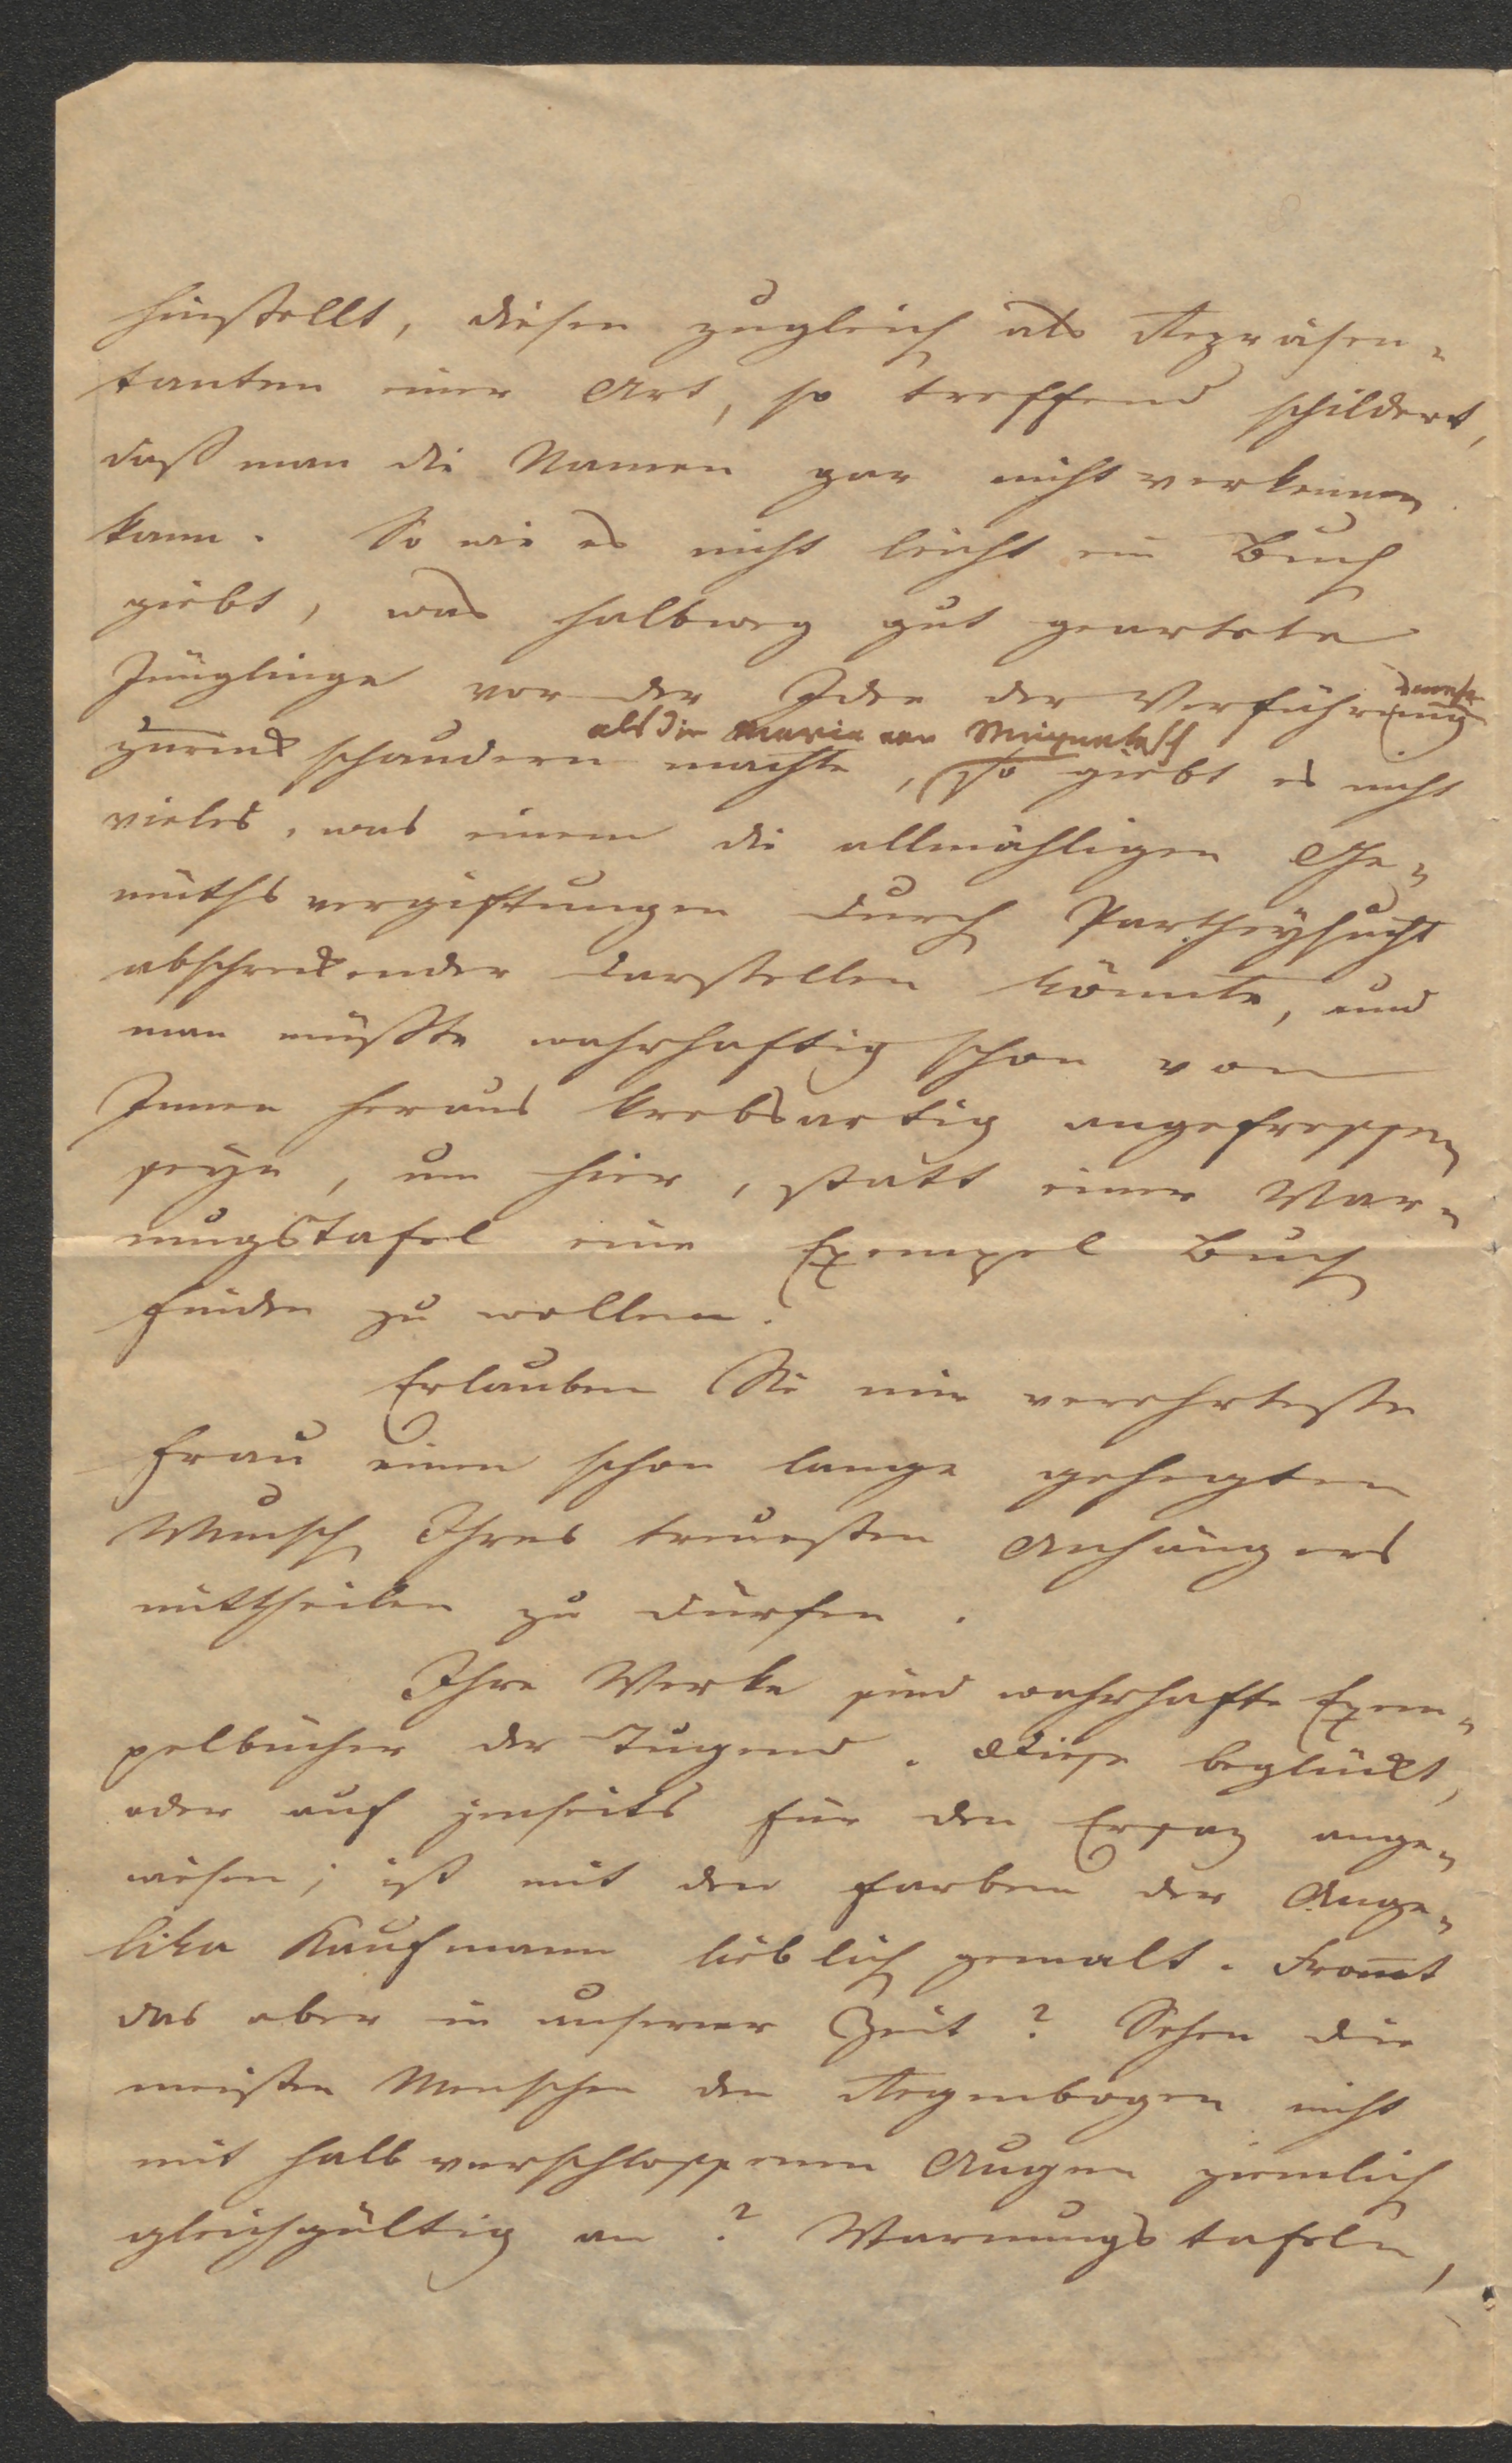 hinstellt, diesen zugleich als Repräsen-
tanten einer Art, so treffend schildert,
daß man die Namen gar nicht verkennen
kann. So wie es nicht leicht ein Buch
giebt, was halbweg gut geartete
Jünglinge vor der Idee der Verführung
als die Maria von
zurück schaudern machte, so giebt es nicht
vieles, was einem die allmähligen Ge-
müthsvergiftungen durch Partheysucht
abschreckender darstellen könnte, und
man müßte wahrhaftig schon von
Innen heraus krebsartig angefressen
seyn, um hier, statt einer War-
nungstafel ein Exempel Buch
finden zu wollen.
Erlauben Sie mir verehrteste
Frau einen schon lange gehegten
Wunsch Ihres treuesten Anhängers
mittheilen zu dürfen.
Ihre Werke sind wahrhafte Exem-
pelbücher der Tugend. Diese beglückt,
oder auf jenseits für den Ersaz ange-
wiesen; ist mit den Farben der Ange-
lika Kaufmann lieblich gemalt. From̅t
das aber in unserer Zeit? Sehen die
meisten Menschen den Regenbogen nicht
mit halb verschlossenen Augen ziemlich
gleichgültig an? Warnungstafeln,